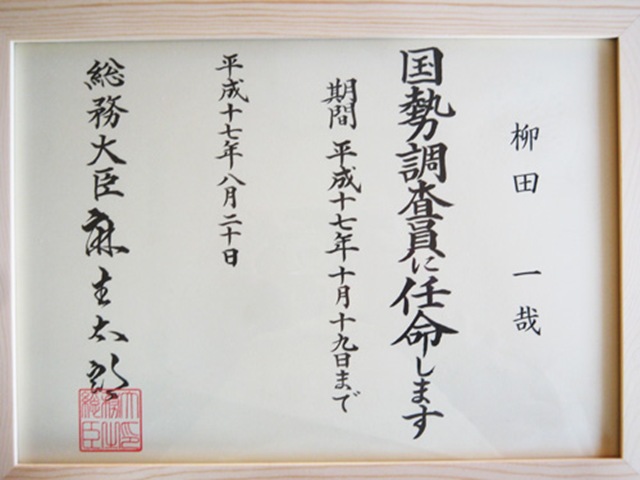 柳田　一哉
国勢調査員に任命します
期間 平成十七年十月十九日まで
平成十七年八月二十日
総務大臣 麻生太郎
総務大臣之印